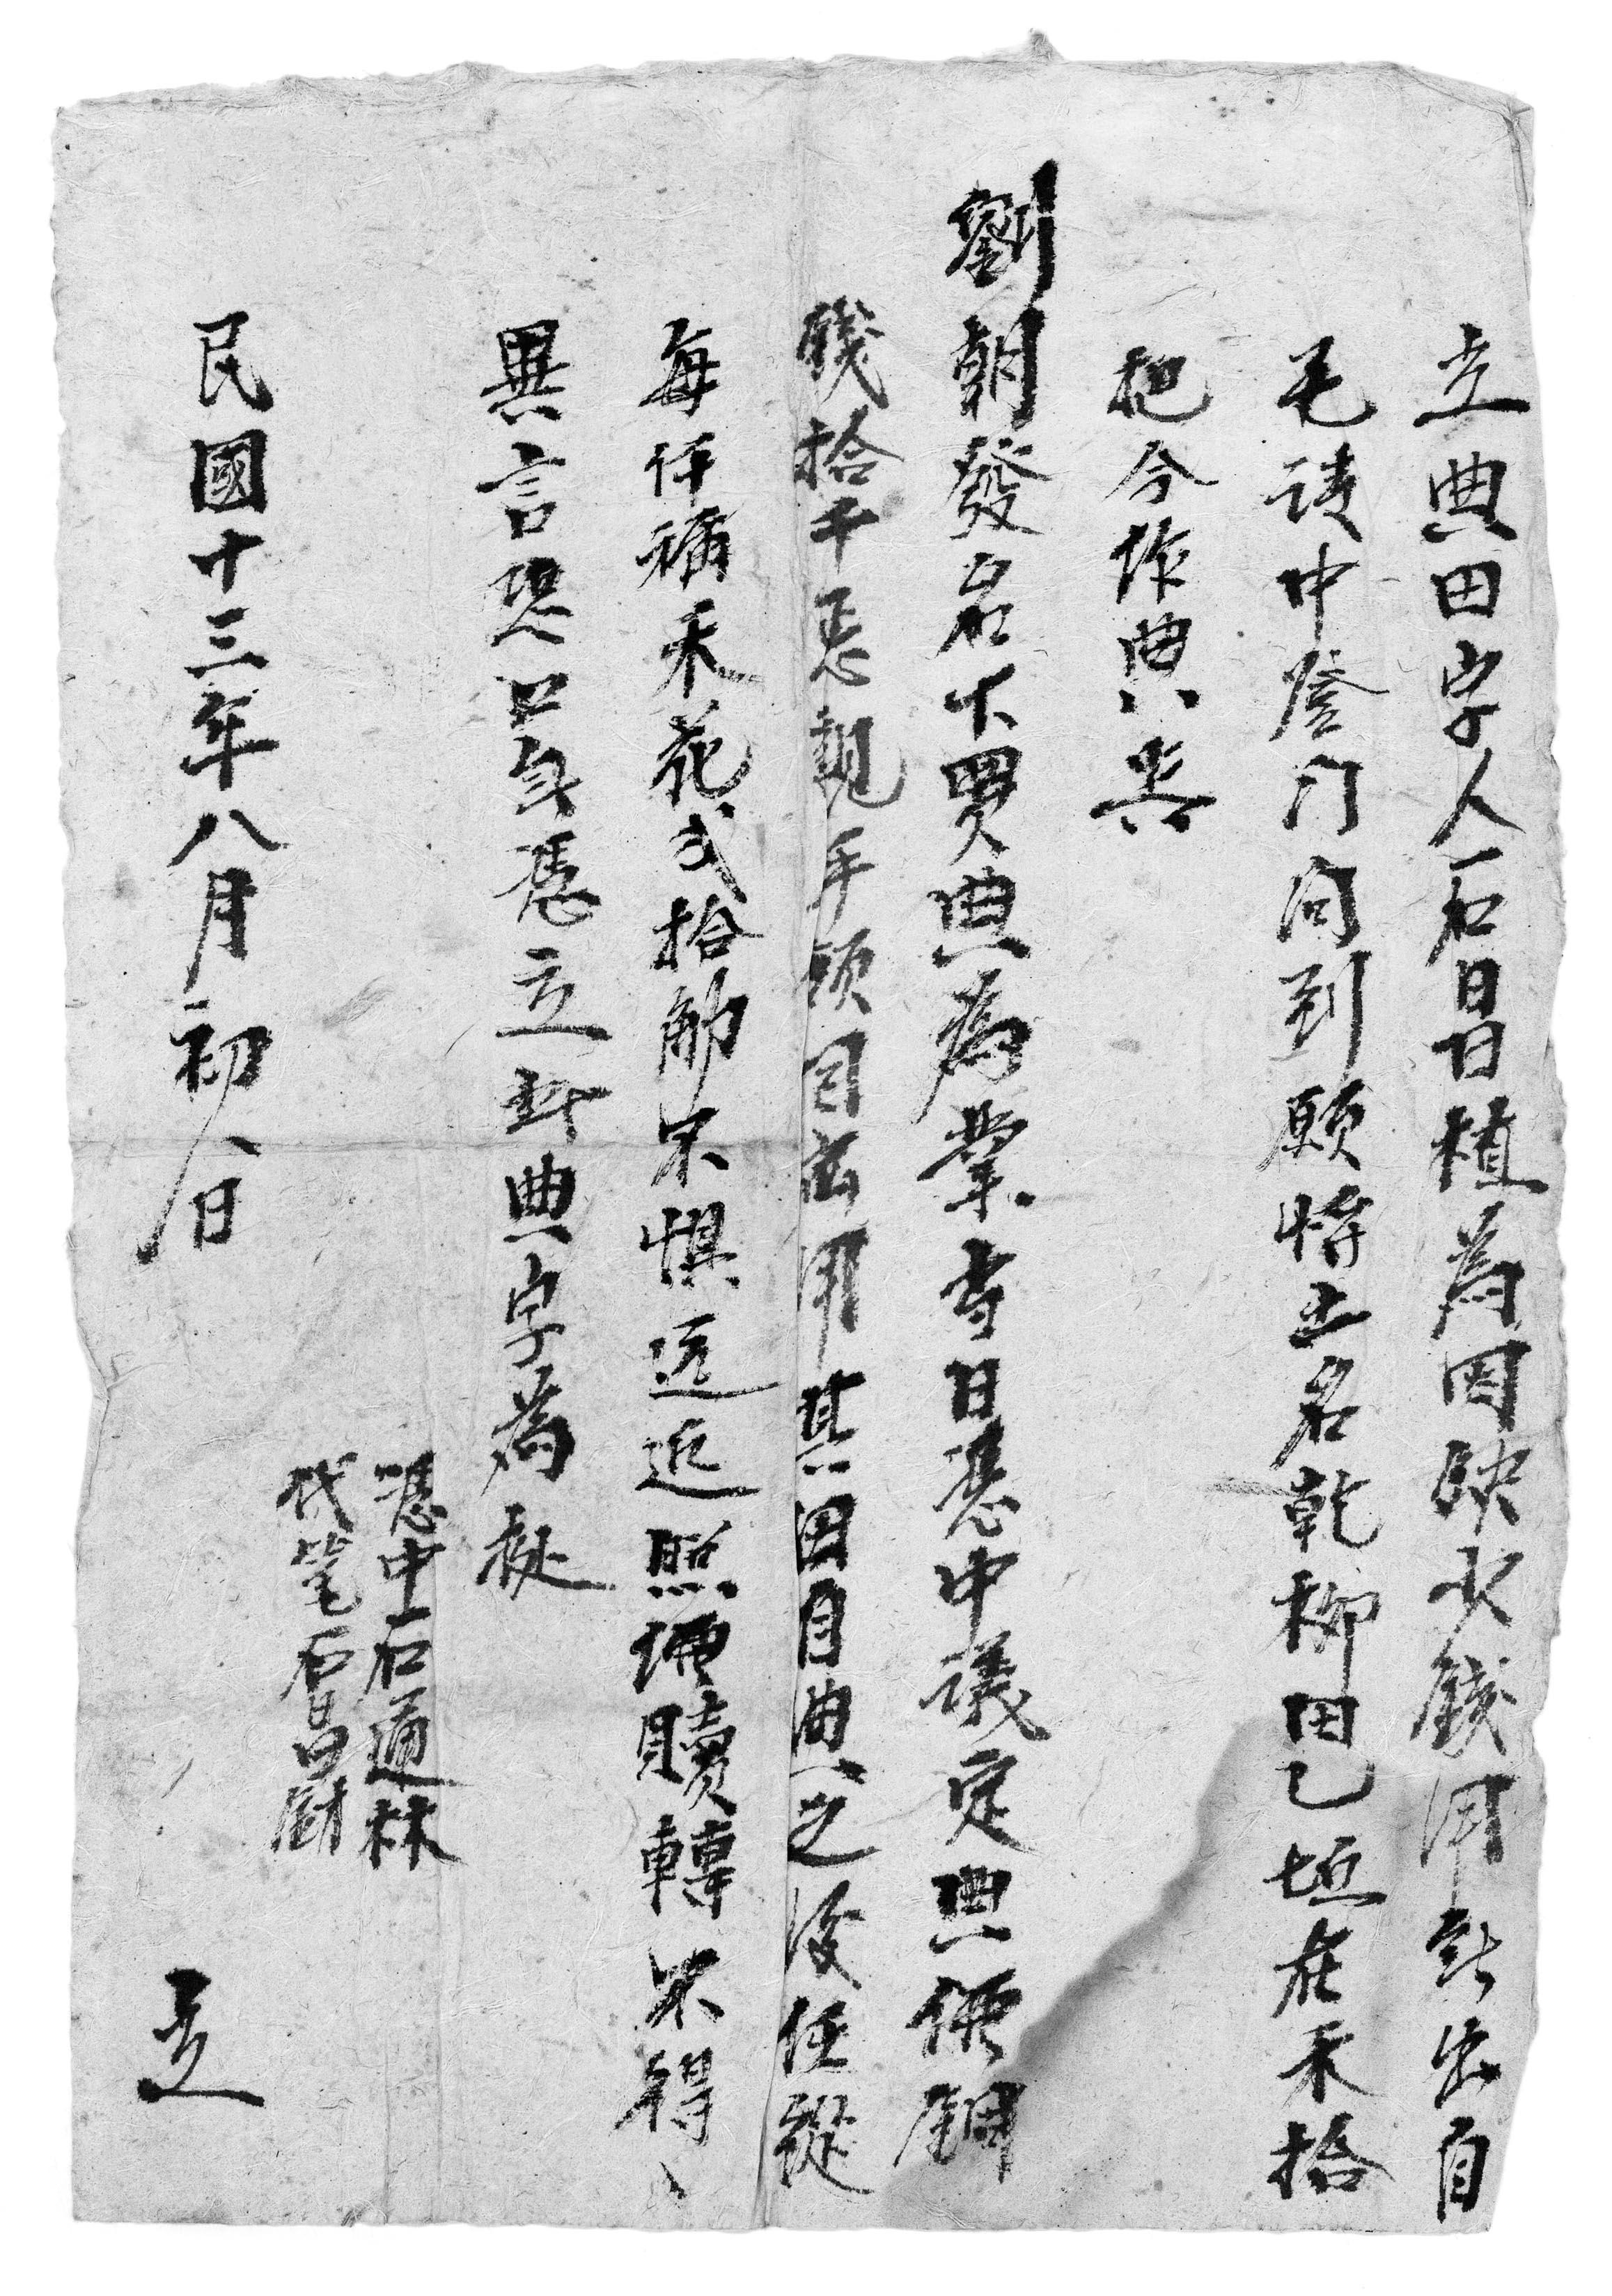 立典田字人石昌植為因缺少錢用無出自
毛請中登门问到願將土名乾柳田乙坵在禾拾
把今作典與
劉朝發名下買典為業當日憑中議定典價銅
錢拾千憑親手領回家用其田自典之後任從
每仟補禾花弍拾觔不惧远近照價贖轉不得
異言恐口無憑立此典字為據
憑中石通林
代笔石昌財
民國十三年八月初八日 立